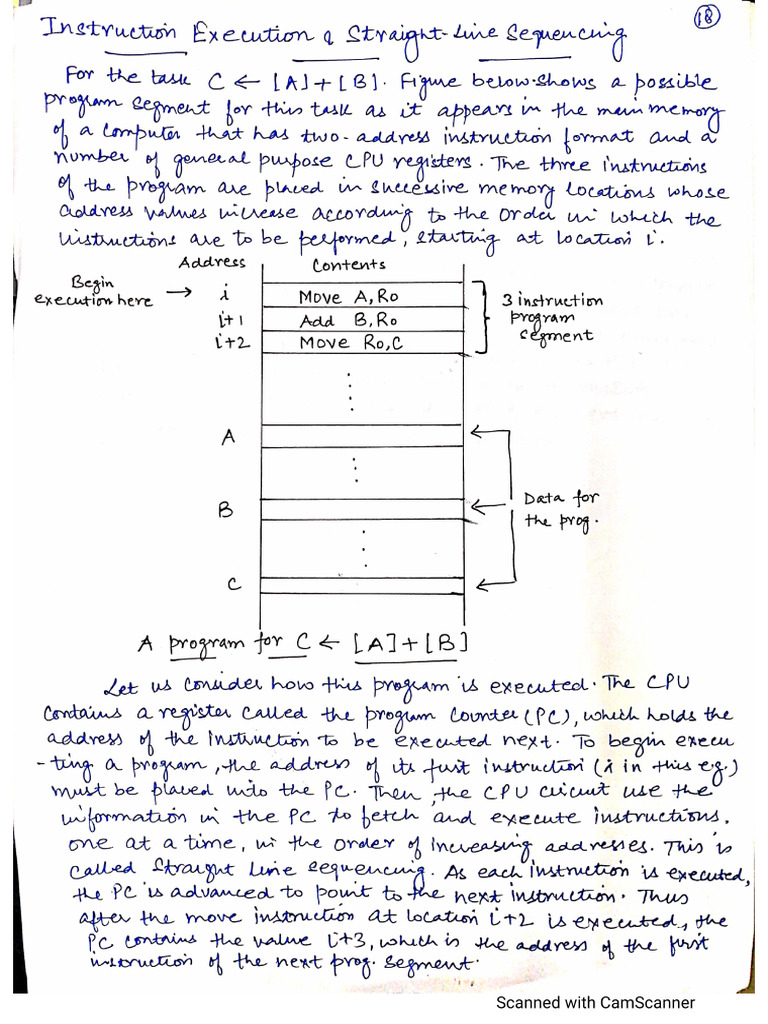 18
Instruction Execution & Straight-Line Sequencing
For the task C ← [A]+[B]. Figure below shows a possible
program segment for this task as it appears in the main memory
of a computer that has two-address instruction format and a
number of general purpose CPU registers. The three instructions
of the program are placed in successive memory locations whose
address values increase according to the order in which the
instructions are to be performed, starting at location i.
Address Contents
Begin
execution here → i Move A,R0
i+1 Add B,R0
i+2 Move R0,C
3 instruction
program
segment
A
B
C
Data for
the prog.
A program for C ← [A]+[B]
Let us consider how this program is executed. The CPU
contains a register called the program counter (PC), which holds the
address of the instruction to be executed next. To begin execu
-ting a program, the address of its first instruction (i in this e.g.)
must be placed into the PC. Then, the CPU circuit use the
information in the PC to fetch and execute instructions,
one at a time, in the order of increasing addresses. This is
called Straight line sequencing. As each instruction is executed,
the PC is advanced to point to the next instruction. Thus
after the move instruction at location i+2 is executed, the
PC contains the value i+3, which is the address of the first
instruction of the next prog. segment.
Scanned with CamScanner